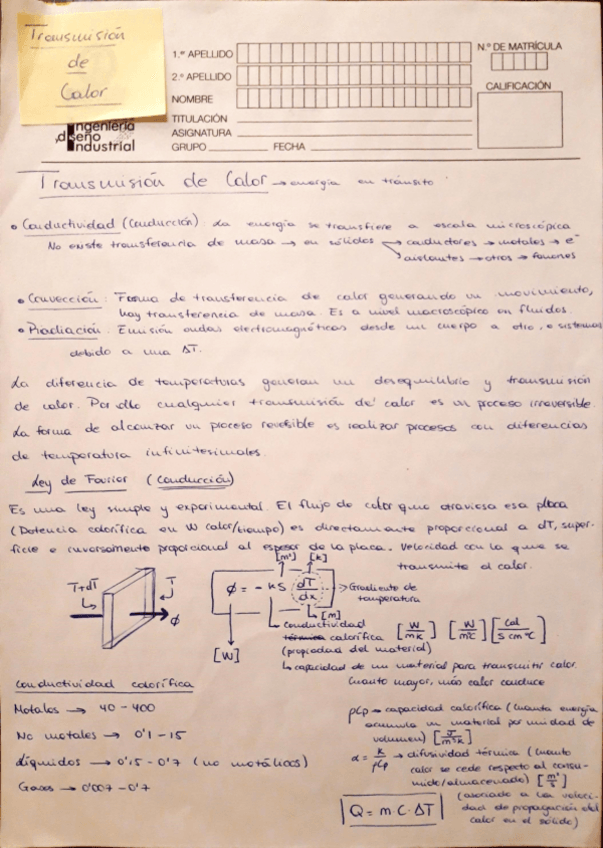 Transmisión
de
Calor
1.er APELLIDO
2.º APELLIDO
NOMBRE
TITULACIÓN
ASIGNATURA
GRUPO FECHA
N.º DE MATRÍCULA
CALIFICACIÓN
Ingeniería
diseño
industrial
Transmisión de Calor → energía en tránsito
• Conductividad (Conducción): La energía se transfiere a escala microscópica
No existe transferencia de masa → en sólidos → conductores → metales → e⁻
aislantes → otros → fonones
• Convección: Forma de transferencia de calor generando un movimiento,
hay transferencia de masa. Es a nivel macroscópico en fluidos.
• Radiación: Emisión ondas electromagnéticas desde un cuerpo a otro, o sistemas
debido a una ΔT.
La diferencia de temperaturas generan un desequilibrio y transmisión
de calor. Por ello cualquier transmisión de calor es un proceso irreversible.
La forma de alcanzar un proceso reversible es realizar procesos con diferencias
de temperatura infinitesimales.
Ley de Fourier (Conducción)
Es una ley simple y experimental. El flujo de calor que atraviesa esa placa
(Potencia calorífica en W calor/tiempo) es directamente proporcional a dT, super-
ficie e inversamente proporcional al espesor de la placa. Velocidad con la que se
transmite el calor.
T+dT T φ
[m²] [k]
φ = - kS dT/dx → Gradiente de
temperatura
[m]
[W]
conductividad
térmica calorífica [W/mk] [W/mºC] [Cal/s cm ºC]
(propiedad del material)
↳ capacidad de un material para transmitir calor.
Cuanto mayor, más calor conduce
Conductividad calorífica
Metales → 40 - 400
No metales → 0'1 - 15
Líquidos → 0'15 - 0'7 (no metálicos)
Gases → 0'007 - 0'7
ρCp → capacidad calorífica (cuanta energía
acumula un material por unidad de
volumen) [J/m³k]
α = k/ρCp → difusividad térmica (cuanto
calor se cede respecto al consu-
mido/almacenado) [m²/s]
(asociado a la veloci-
dad de propagación del
calor en el sólido)
Q = m·C·ΔT